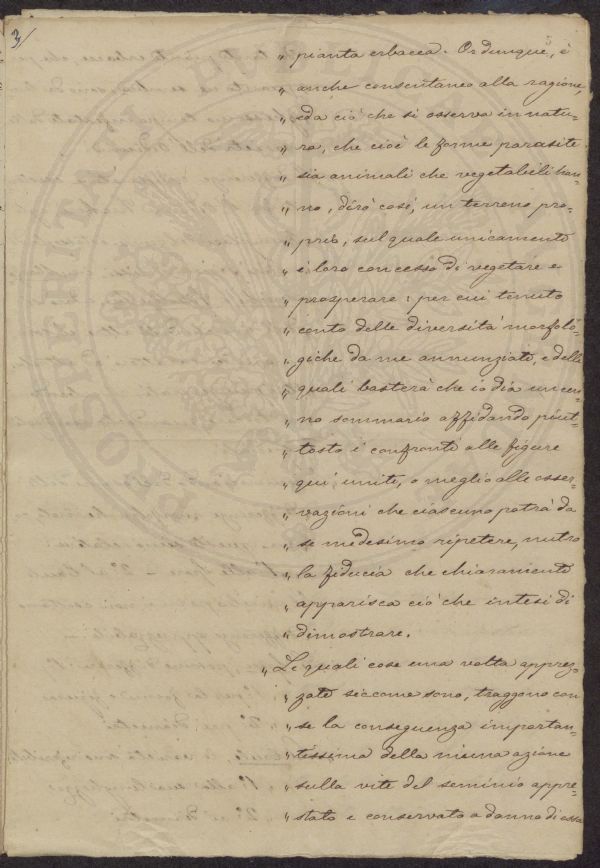 3/
„ pianta erbacea. Or dunque, è
„ anche consentaneo alla ragione,
„ da ciò che si osserva in natu-
„ ra, che cioè le forme parasite
„ sia animali che vegetabili han-
„ no, dirò così, un terreno pro-
„ prio, sul quale unicamente
„ è loro concesso di vegetare e
„ prosperare: per cui tenuto
„ conto delle diversità morfolo-
„ giche da me annunziate, e delle
„ quali basterà che io dia un cen-
„ no sommario affidando piut-
„ tosto i confronti alle figure
„ qui unite, o meglio alle osser-
„ vazioni che ciascuno potrà da
„ se medesimo ripetere, nutro
„ la fiducia che chiaramente
„ apparisca ciò che intesi di
„ dimostrare.
„ Le quali cose una volta apprez-
„ zate siccome sono, traggono con
„ se la conseguenza importan-
„ tissima della niuna azione
„ sulla vite del seminio appre-
„ stato e conservato a danno di essa